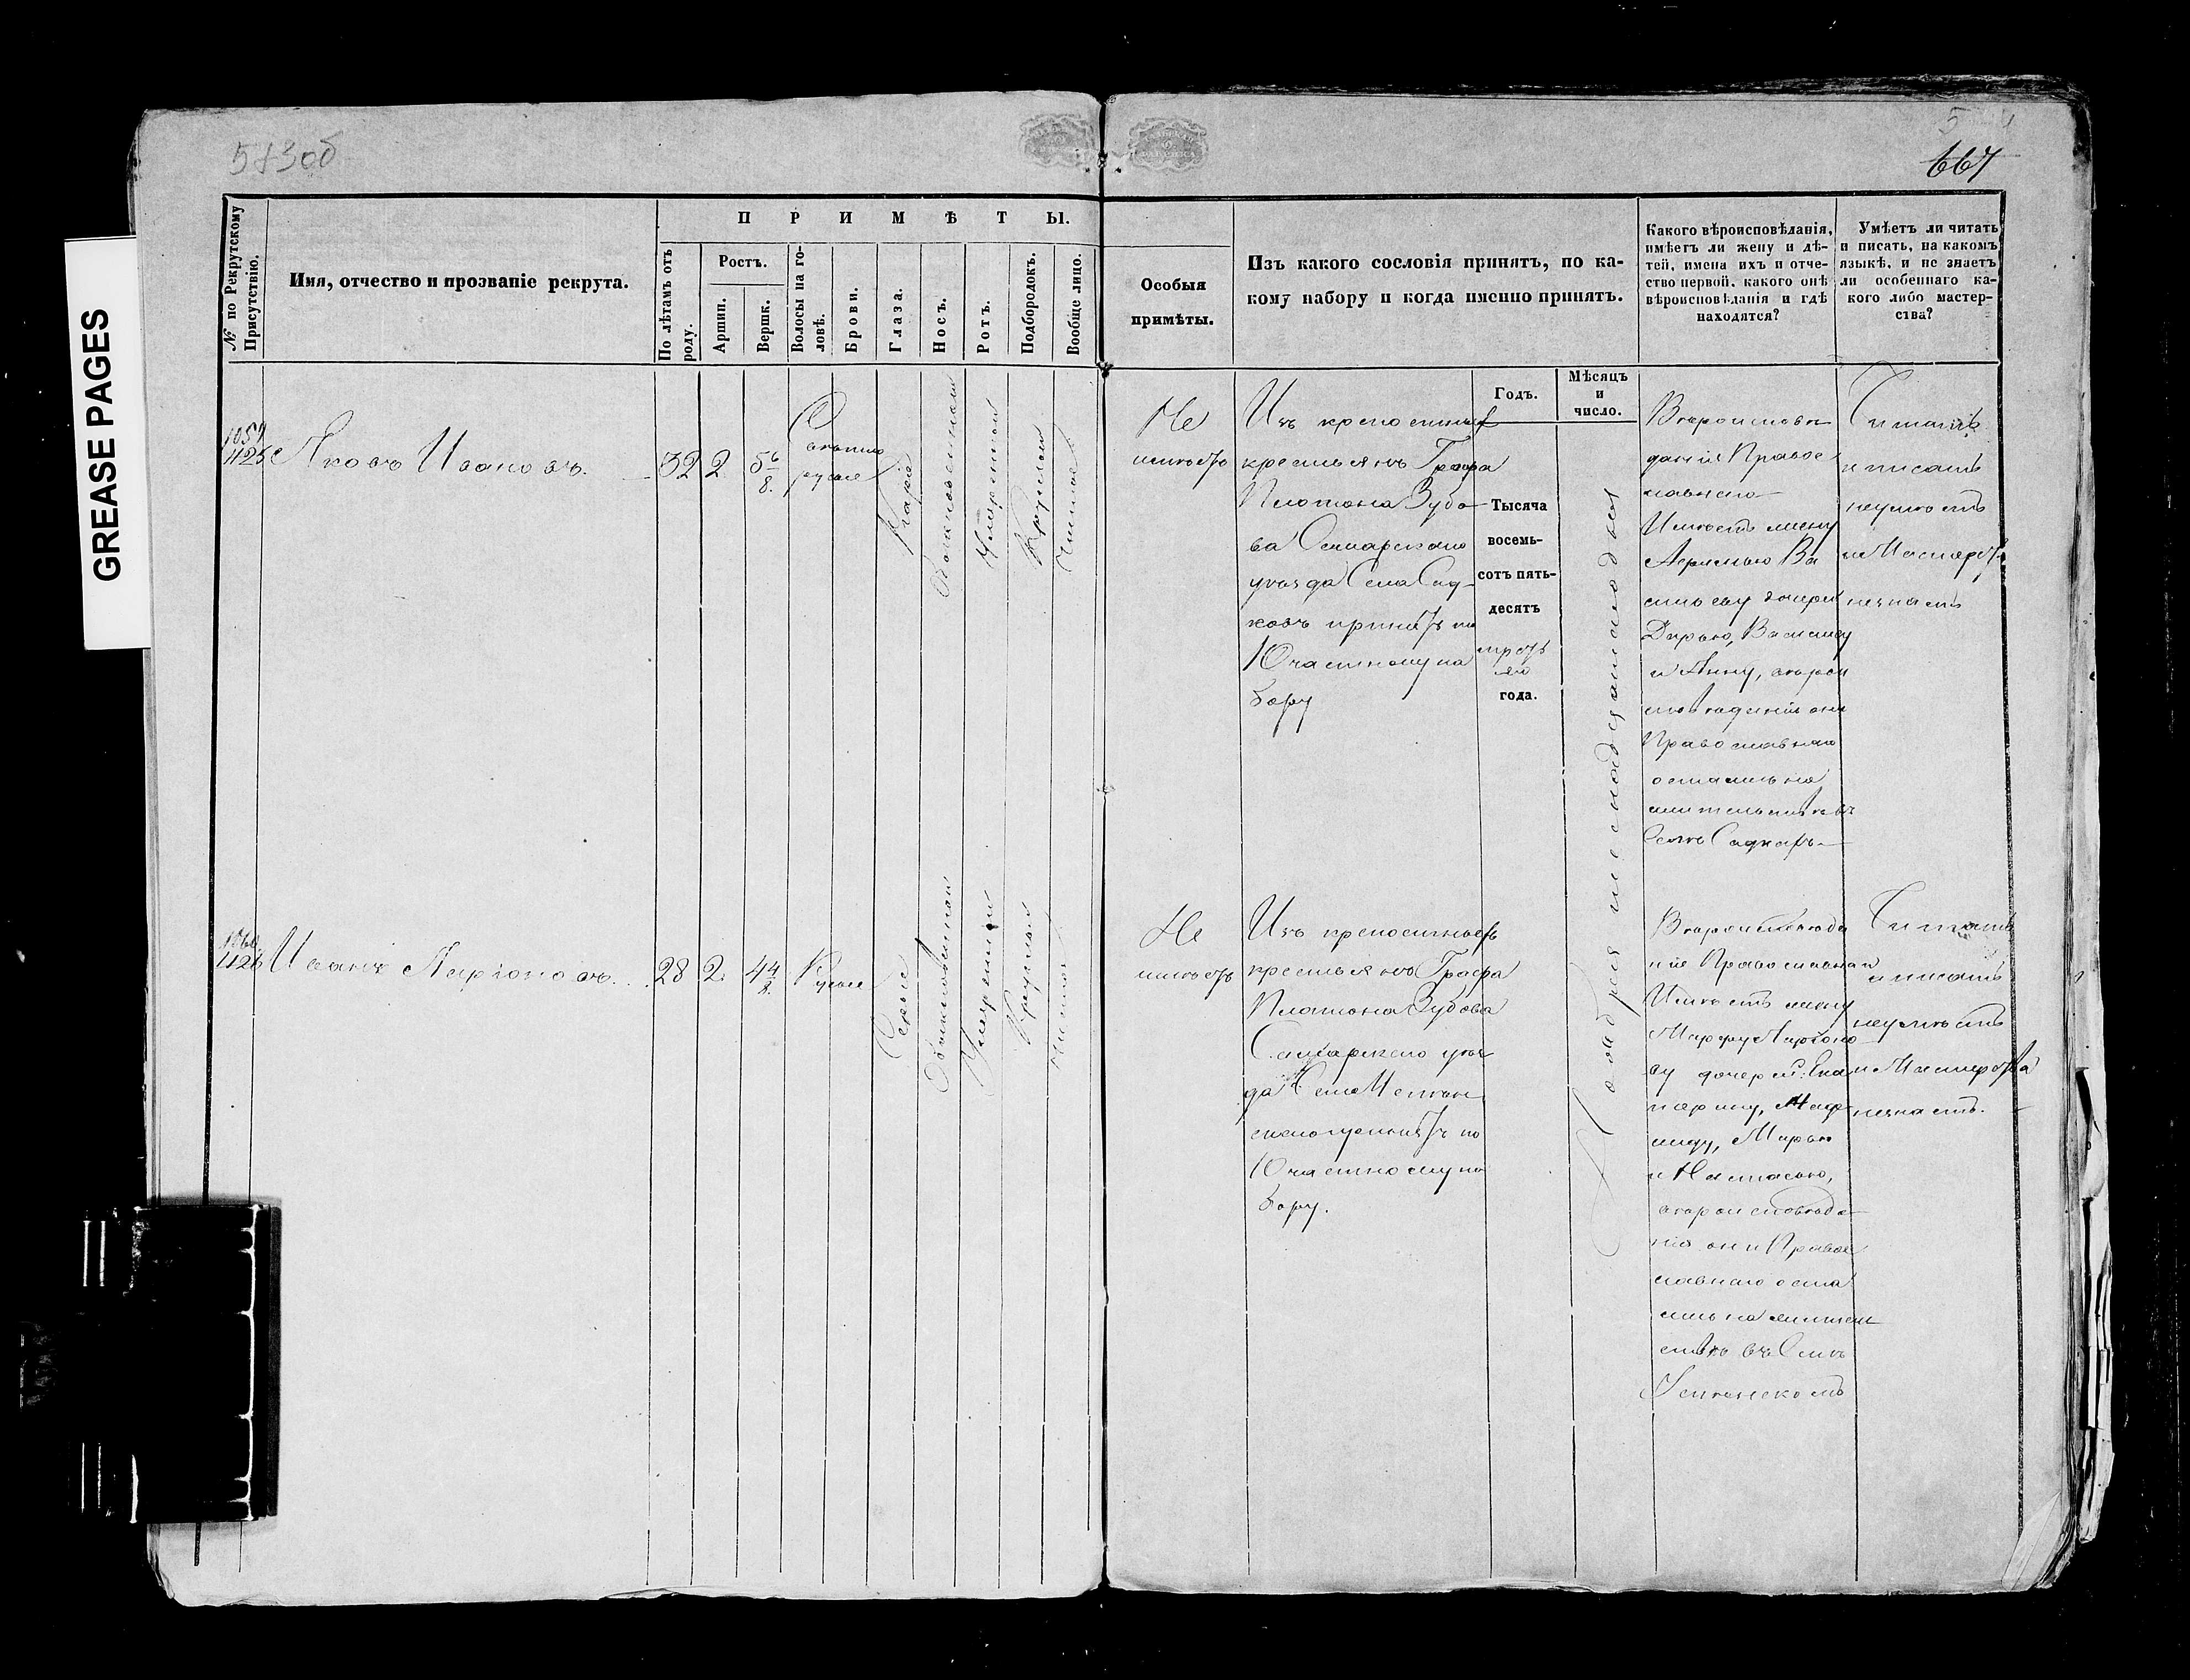 573об
667
GREASE PAGES
№ по Рекрутскому Присутствію.
Имя, отчество и прозваніе рекрута.
ПРИМѢТЫ.
По лѣтамъ отъ роду.
Ростъ.
Аршин.
Вершк.
Волосы на головѣ.
Брови.
Глаза.
Носъ.
Ротъ.
Подбородокъ.
Вообще лицо.
Особыя
примѣты.
Изъ какого сословія принятъ, по ка-
кому набору и когда именно принятъ.
Какого вѣроисповѣданія,
имѣетъ ли жену и дѣ-
тей, имена ихъ и отче-
ство первой, какого онѣ
вѣроисповѣданія и гдѣ
находятся?
Умѣетъ ли читать
и писать, на какомъ
языкѣ, и не знаетъ
ли особеннаго ка-
кого либо мастер-
ства?
Годъ.
Мѣсяцъ
и
число.
1125
Яковъ Ивановъ.
32
2
5 6/8.
русые
Каріе
Обыкновенной
Умеренной
Круглой
Чистое
Не
имѣетъ
Изъ крепостныхъ
крестьянъ Графа
Платона Зубо-
ва Самарскаго
уѣзда Села Сад-
ковъ принятъ по
10 частному на
бору
Тысяча
восемь-
сотъ пять-
десятъ
третьяго
года.
Ноября шестнадцатаго дня
Вѣроисповѣ
данія Правос
лавнаго
Имѣетъ жену
Ва
сильеву дочерей
Дарью, Василису
и Анну, вѣрои
сповѣданія они
Православнаго
остались на
жительствѣ въ
Селѣ Садкахъ
Читать
и писать
неумѣетъ
и Мастерст.
незнаетъ
1126
Иванъ Ларіоновъ.
28
2.
4 4/8.
Русые
Серые
Обыкновенной
Умеренной
Круглой
Чистое
Не
имѣетъ
Изъ крепостныхъ
крестьянъ Графа
Платона Зубова
Самарскаго уѣз
да Села
принятъ по
10 частному на
бору.
Вѣроисповѣда
нія Православнаго
Имѣетъ жену
Марфу Ларіоно
ву дочерей: Ека
терину, Мат
Марью
и Настасью,
вѣроисповѣда
нія они Правос
лавнаго оста
лись на жител
ствѣ въ Селѣ
Читать
и писать
неумѣетъ
и Мастерства
незнаетъ.